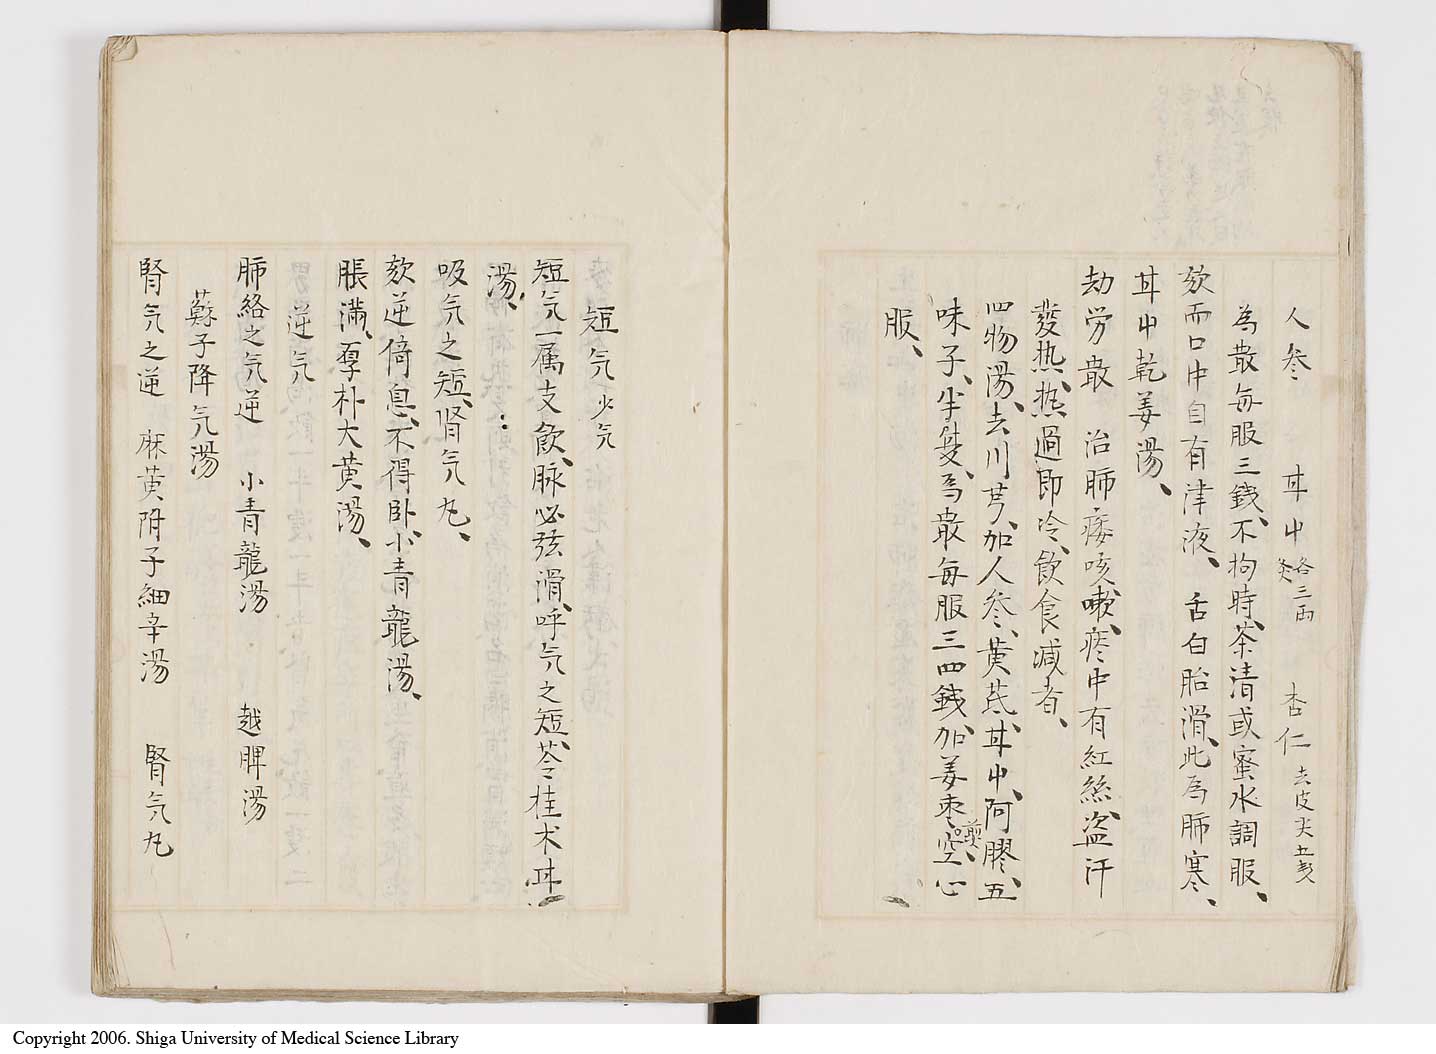 人参　丼中各三両炙　杏仁去皮尖五戔
為散毎服三錢、不拘時、茶清或蜜水調服、
欬而口中自有津液、舌白胎滑、此為肺寒、
丼中乾姜湯、
劫労散　治肺痿咳嗽、痰中有紅絲、盗汗
發热、热過即冷、飲食減者、
四物湯、去川芎、加人参、黄茋、丼中、阿膠、五
味子、半夏、為散毎服三四錢、加姜枣煎、空心
服、
短气　少气
短气一属支飲、脉必弦滑、呼气之短、苓桂术丼
湯、
吸气之短、肾气丸、
欬逆倚息、不得卧、小青龍湯、
脹満、厚朴大黄湯、
逆气
肺絡之气逆　小青龍湯　越脾湯
蘇子降气湯
腎气之逆　麻黄附子細辛湯　腎气丸
Copyright 2006. Shiga University of Medical Science Library